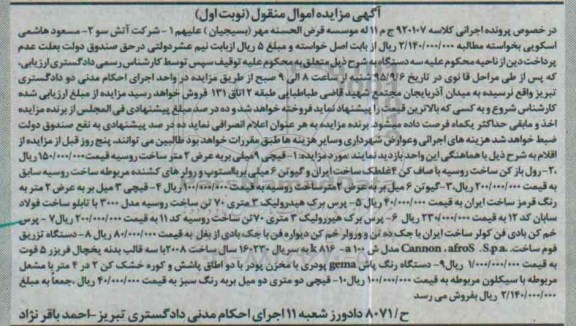 آگهی مزایده اموال منقول (نوبت اول)
در خصوص پرونده اجرائی کلاسه ۹۲۰۱۰۷ ج م ۱۱ له موسسه قرض الحسنه مهر (بسیجیان) علیهم ۱- شرکت آتش سو ۲- مسعود هاشمی
اسکویی بخواسته مطالبه ۳/۱۴۰/۰۰۰/۰۰۰ ریال از بابت اصل خواسته و مبلغ ۵ ریال ازبابت نیم عشردولتی درحق صندوق دولت بعلت عدم
پرداخت دین از ناحیه محکوم علیه سه دستگاه به شرح ذیل متعلق به محکوم علیه توقیف سپس توسط کارشناس رسمی دادگستری ارزیابی،
که پس از طی مراحل قانونی در تاریخ ۹۵/۹/۶ شنبه از ساعت ۸ الی ۹ صبح از طریق مزایده در واحد اجرای احکام مدنی دو دادگستری
تبریز واقع نرسیده به میدان آذربایجان مجتمع شهید قاضی طباطبایی طبقه ۲ اتاق ۱۳۱ فروش خواهد رسید مزایده از مبلغ ارزیابی شده
کارشناس شروع و به کسی که بالاترین قیمت را پیشنهاد نماید فروخته خواهد شد و ده در صد مبلغ پیشنهادی فی المجلس از برنده مزایده
اخذ و مابقی حداکثر یکماه فرصت داده میشود برنده مزایده به هر عنوان اعلام انصراف نماید ده در صد پیشنهادی به نفع صندوق دولت
ضبط خواهد شد هزینه های اجرائی و عوارض شهرداری وسایر هزینه ها طبق مقررات خواهد بود طالبین می توانند، پنج روز قبل از مزایده از
اقلام به شرح ذیل با هماهنگی این واحد بازدید نمایند: مورد مزایده: ۱- قیچی ۹میلی به عرض ۲ متر ساخت روسیه قیمت ۱۵۰/۰۰۰/۰۰۰ ریال
۲- رول باز کن ساخت روسیه با صاف کن ۴غلطک ساخت ایران و گیوتن ۶ میلی بااستوپ و رول های کشنده مربوطه ساخت روسیه سابق
به قیمت ۲۰۰/۰۰۰/۰۰۰ ریال ۳- گیوتن ۶ میل بر به عرض ۲متر ساخت روسیه به قیمت ۱۰۰/۰۰۰/۰۰۰ ریال ۴- قیچی ۳ میل بر به عرض ۲ متر به
رنگ قرمز ساخت ایران به قیمت ۴۰/۰۰۰/۰۰۰ ریال ۵- پرس برک هیدرولیک ۳ متری ۷۰ تن ساخت روسیه مدل ۳۰۰۰ با تابلو ساخت فولاد
سابان کد ۱۲ به قیمت ۲۳۰/۰۰۰/۰۰۰ ریال ۶- پرس برک هیدرولیک ۳ متری ۷۰تن ساخت روسیه کد ۱۱ به قیمت ۲۰۰/۰۰۰/۰۰۰ ریال ۷- پرس
خم کن بادی فن کولر ساخت ایران با جک ده تن و ورولر خم کن دیواره فن با جک بادی از بغل به قیمت ۸۰/۰۰۰/۰۰۰ ریال ۸- دستگاه تزریق
فوم ساخت Cannon .afroS .S.pa. مدل ش ۱۰۰ a - k ۸۱۶ به سریال ۱۶۰۲۳۰ سال ساخت ۲۰۰۸ با سه قالب بدنه یخچال فریزر ۵ فوت
به قیمت ۱/۰۰۰/۰۰۰/۰۰۰ ریال ۹- دستگاه رنگ پاش gema پودری با مخزن پودر با دو اطاق پاشش و کوره خشک کن ۲ در ۴ متر با مشعل
مربوطه با سیکلون مربوطه به قیمت ۱۰۰/۰۰۰/۰۰۰ ریال ۱۰- قیچی دو متری دو میل بر به رنگ سبز به قیمت ۴۰/۰۰۰/۰۰۰ ریال .جمعاً به مبلغ
۲/۱۴۰/۰۰۰/۰۰۰ ریال بفروش می رسد
ح / ۸۰۷۱ دادورز شعبه ۱۱ اجرای احکام مدنی دادگستری تبریز - احمد باقر نژاد